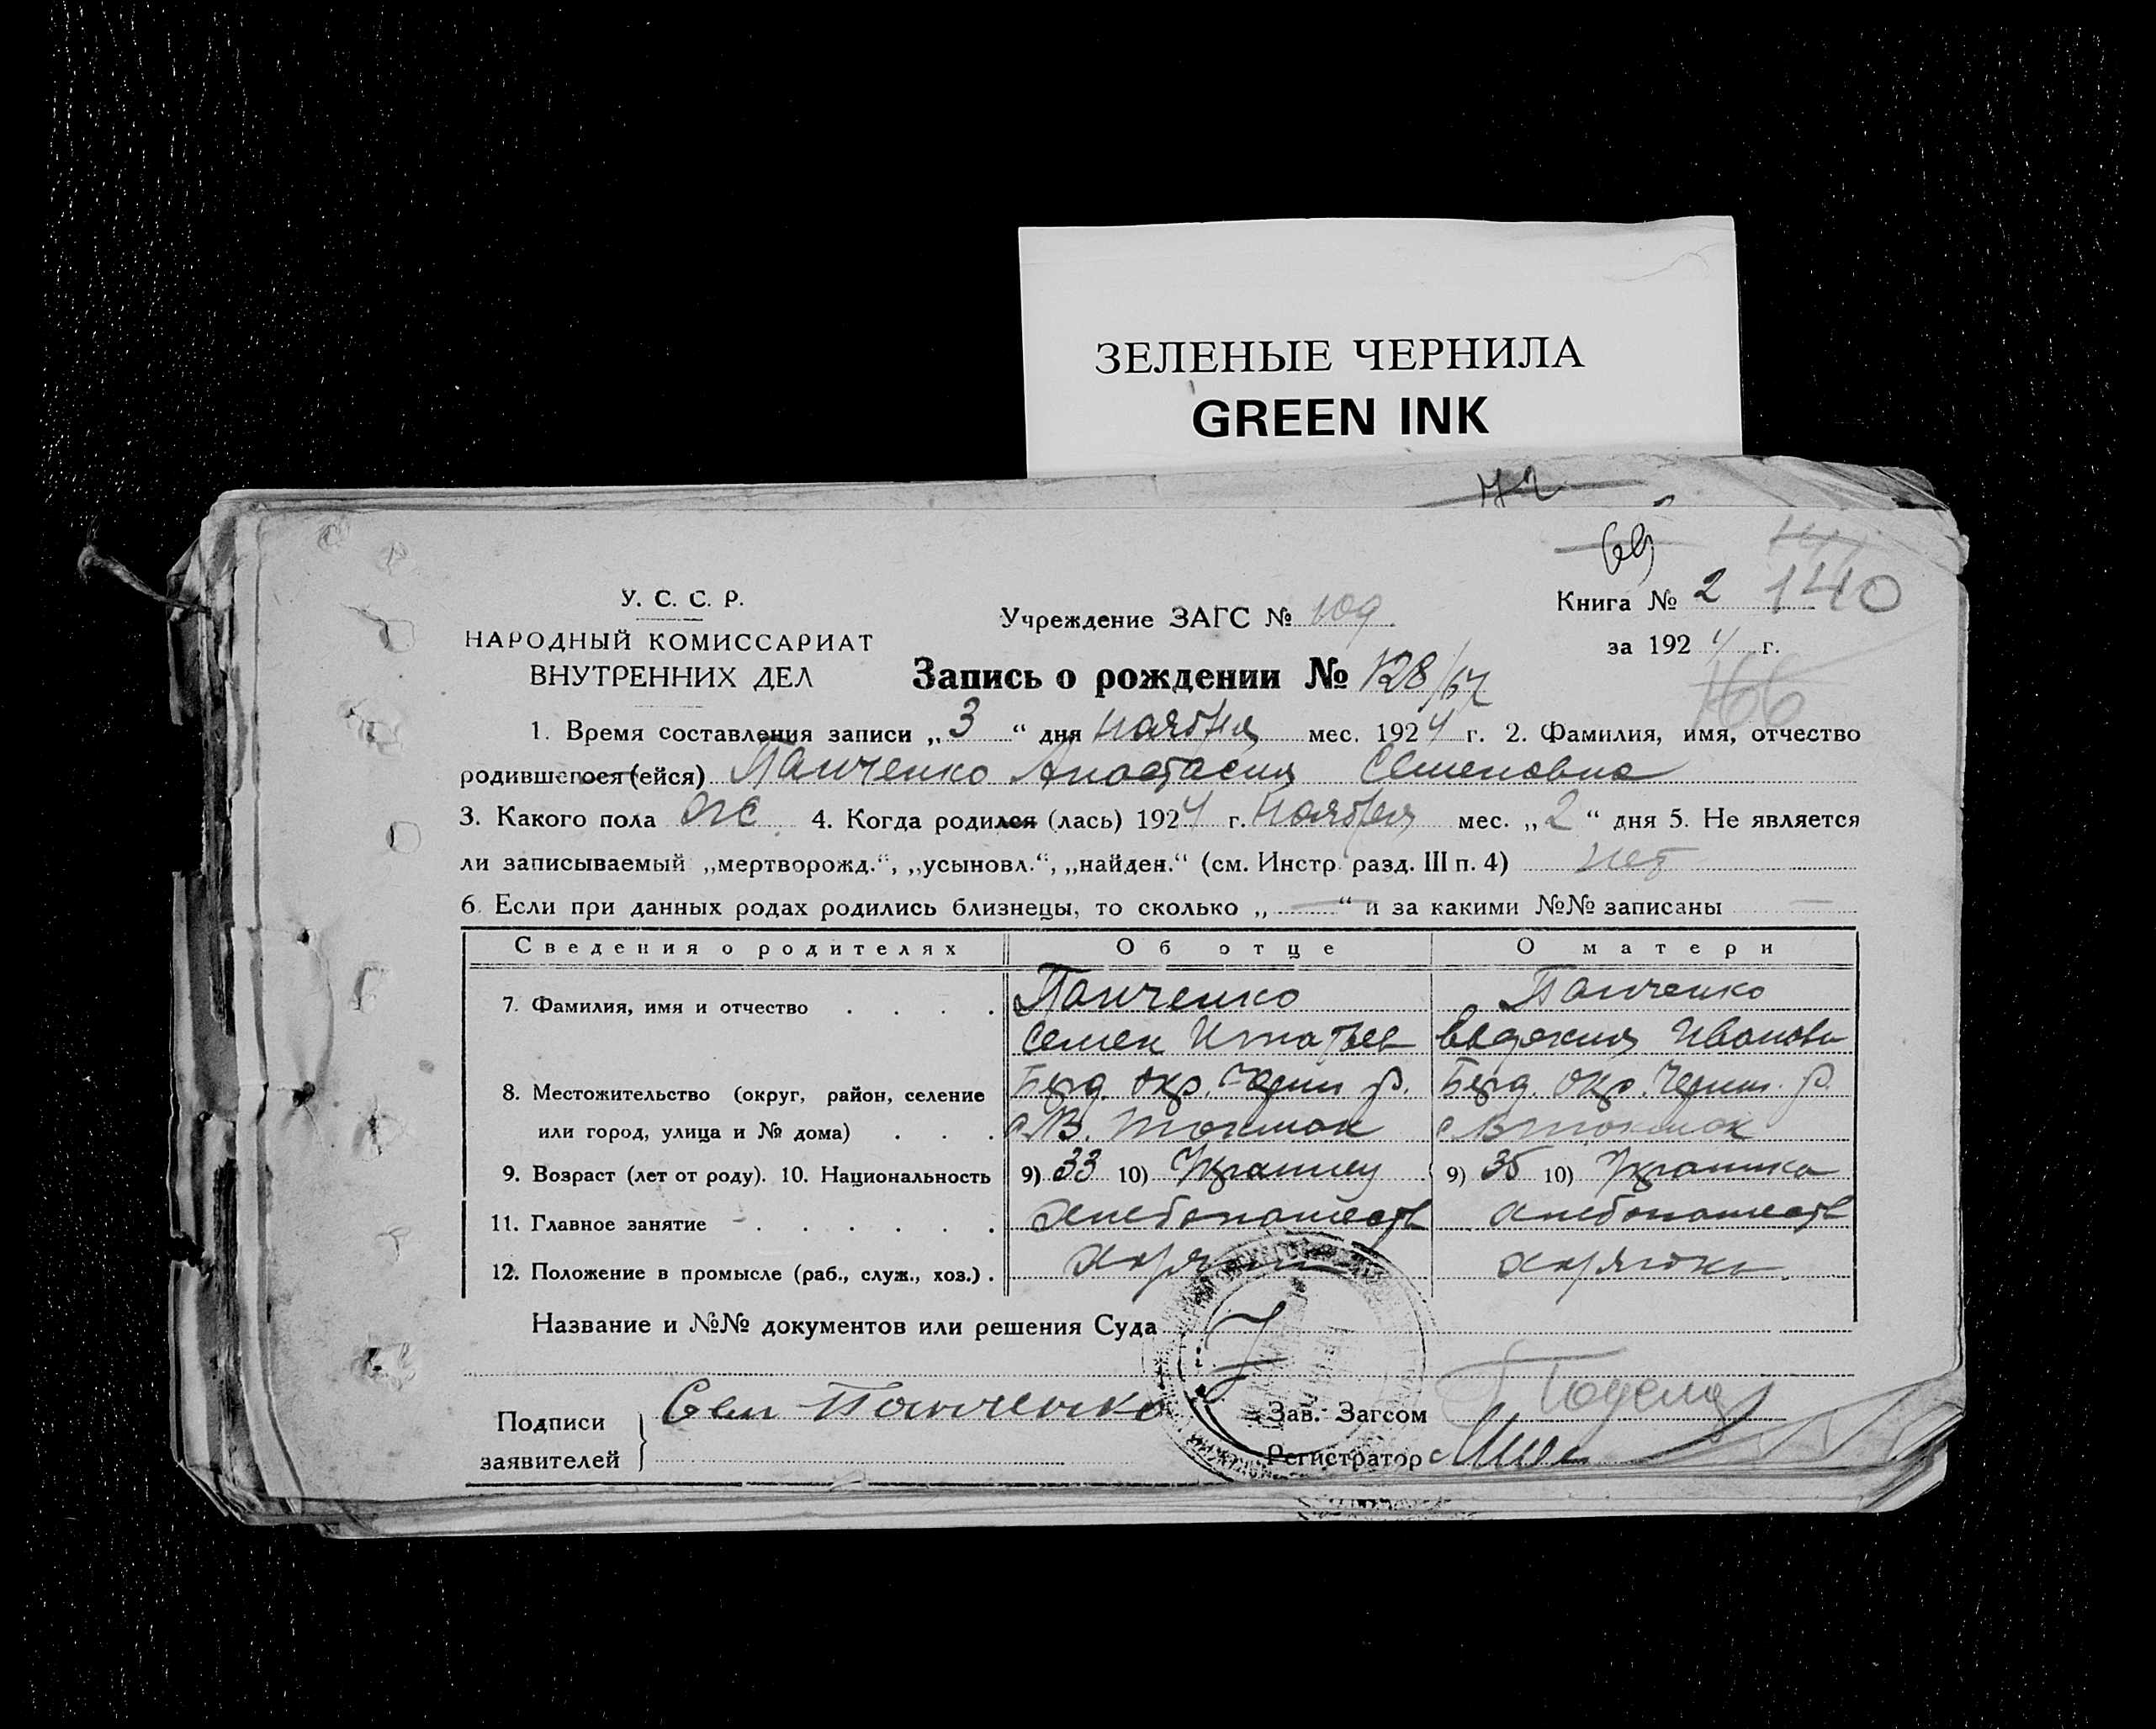 ЗЕЛЕНЫЕ ЧЕРНИЛА
GREEN INK
72
69
140
У. С. С. Р.
НАРОДНЫЙ КОМИССАРИАТ
ВНУТРЕННИХ ДЕЛ
Учреждение ЗАГС № 109
Книга № 2
за 1924 г.
166
Запись о рождении № 128/67
1. Время составления записи „3“ дня ноября мес. 1924 г. 2. Фамилия, имя, отчество
родившегося (ейся) Панченко Анастасия Семеновна
3. Какого пола ж 4. Когда родился (лась) 1924 г. Ноября мес. „2“ дня 5. Не является
ли записываемый „мертворожд.“, „усыновл.“, „найден.“ (см. Инстр. разд. III п. 4) нет
6. Если при данных родах родились близнецы, то сколько „—“ и за какими №№ записаны —
Сведения о родителях Об отце О матери
7. Фамилия, имя и отчество Панченко Панченко
Семен Игнатьев Евдокия Иванов
8. Местожительство (округ, район, селение Берд. окр. Черн. р. Берд. Окр. Черн. р.
или город, улица и № дома) с В. Токмак с В Токмак
9. Возраст (лет от роду). 10. Национальность 9) 33 10) Украинец 9) 35 10) Украинка
11. Главное занятие хлебопашеств хлебопашеств
12. Положение в промысле (раб., служ., хоз.)
Название и №№ документов или решения Суда
Подписи заявителей Сем Панченко
Зав. Загсом
Регистратор